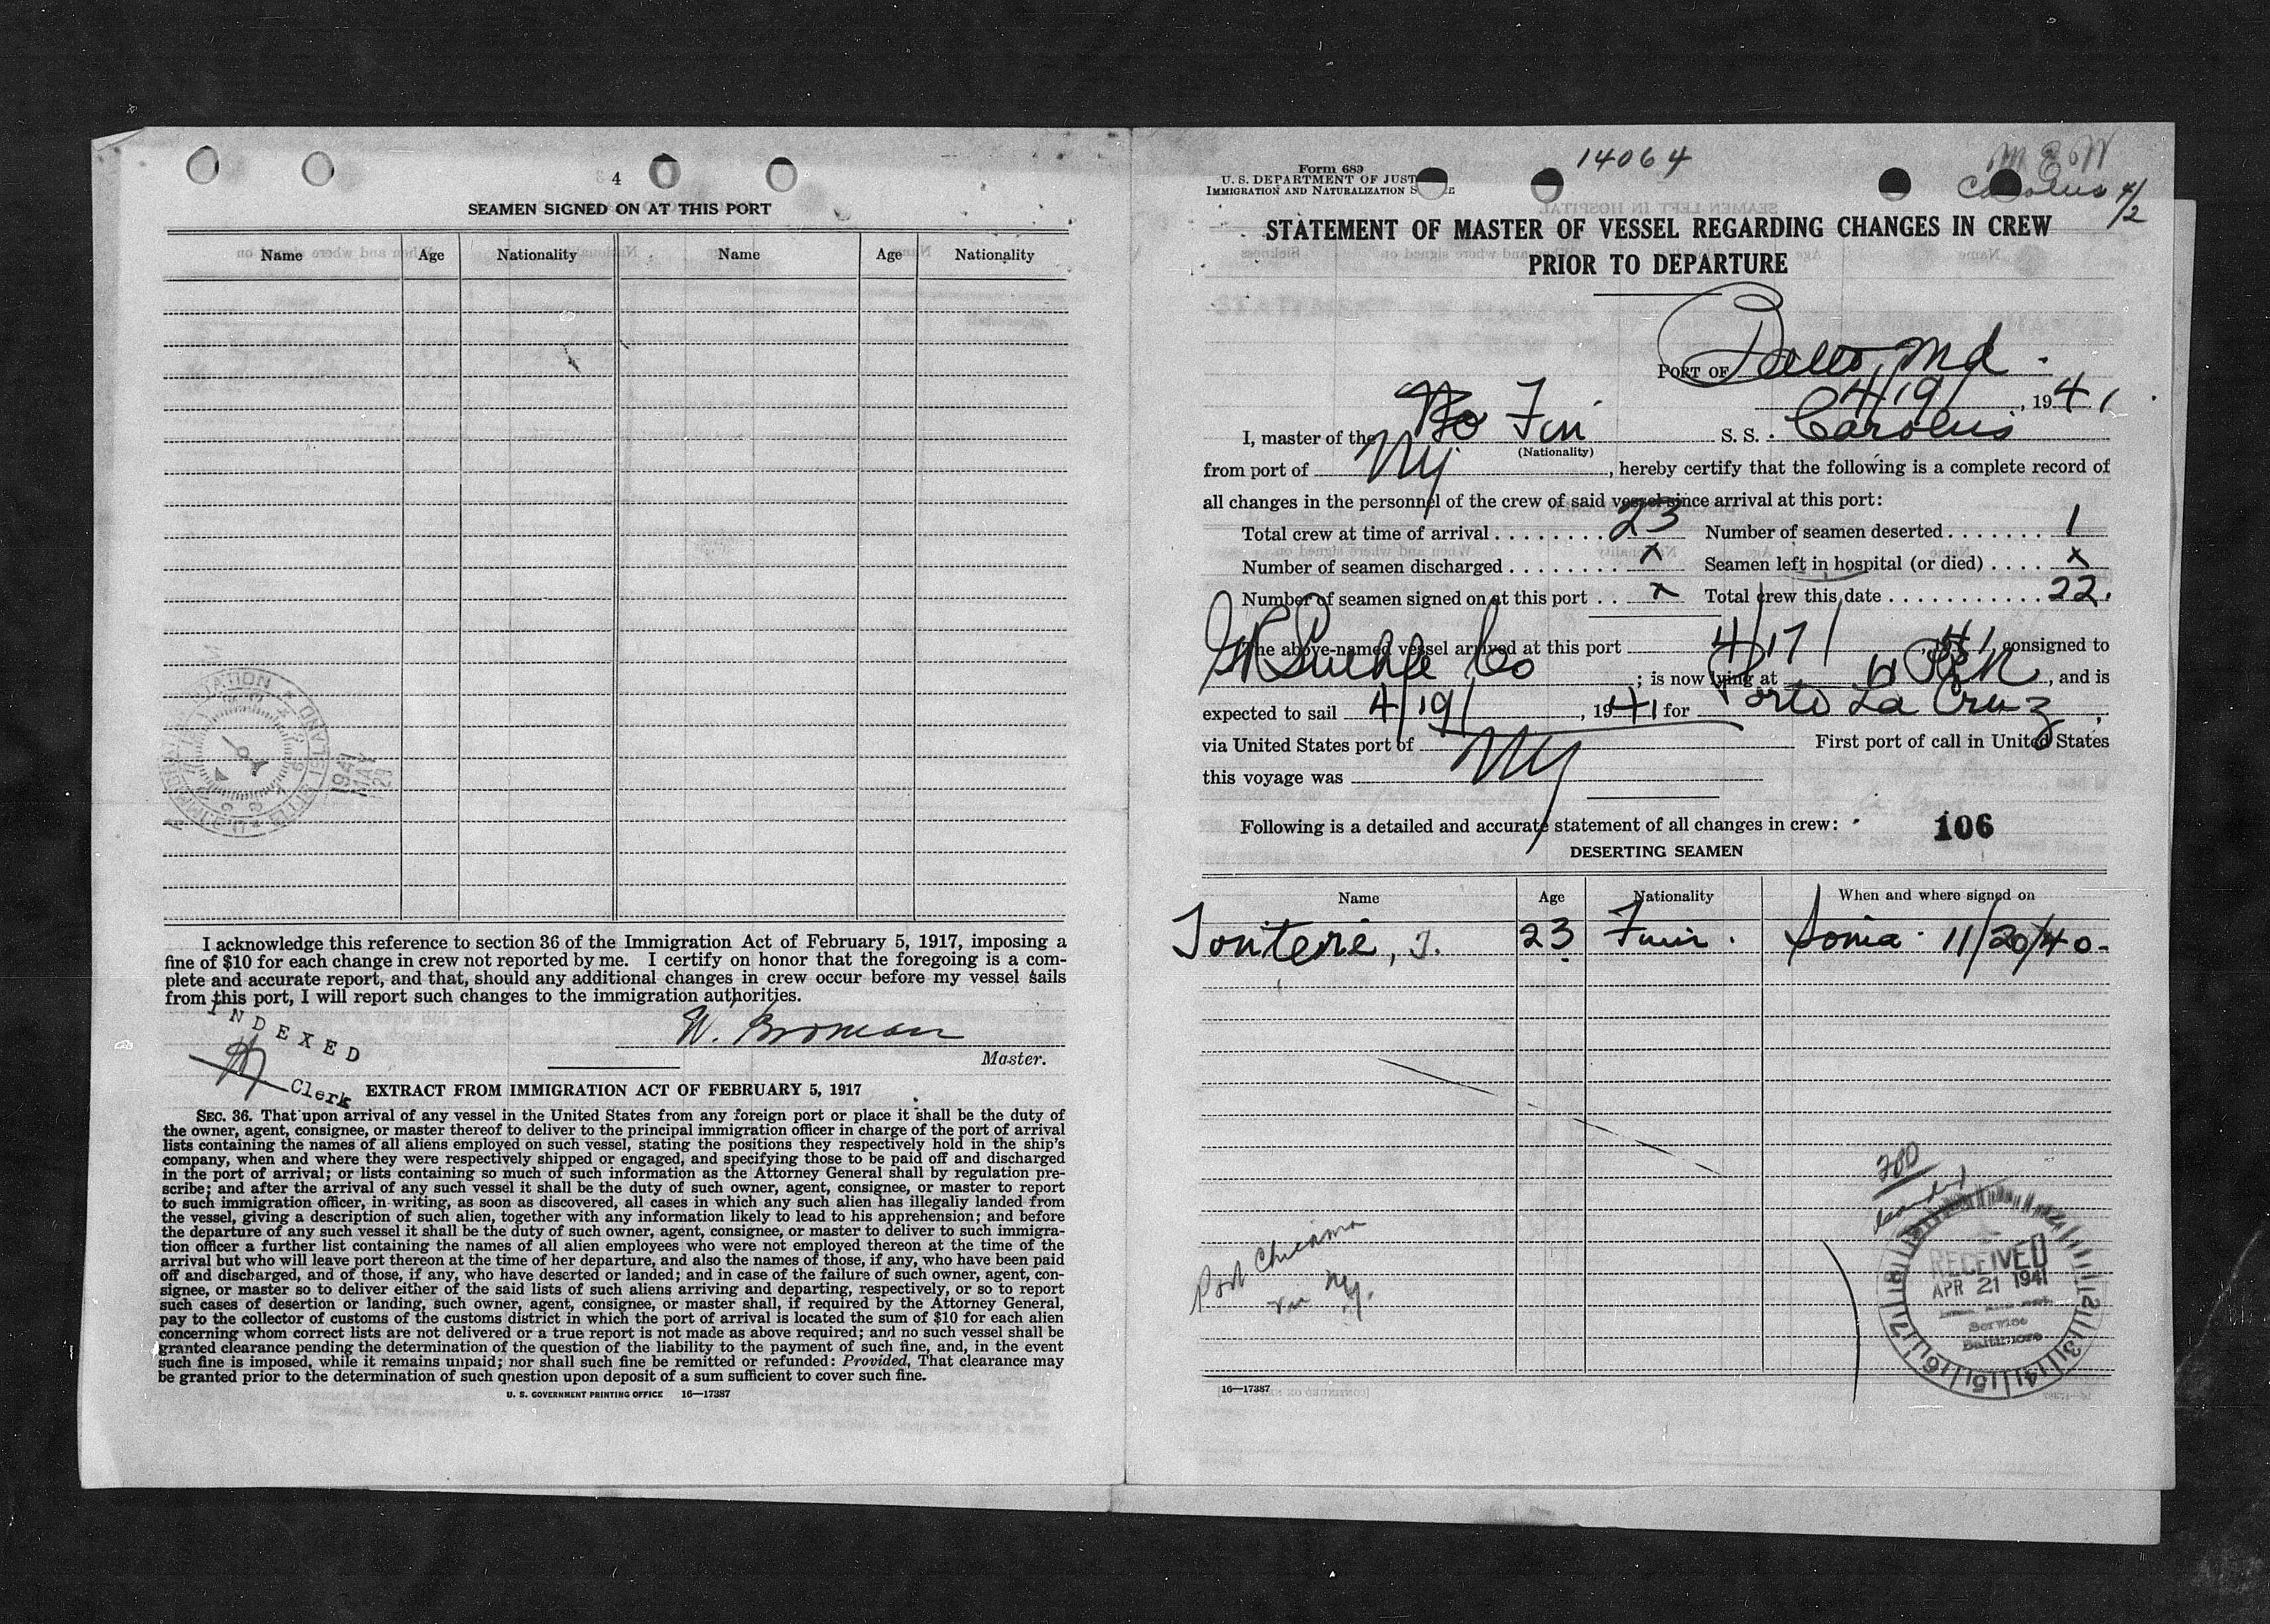 4
SEAMEN SIGNED ON AT THIS PORT
Name Age Nationality Name Age Nationality
1941
MAY
21
I acknowledge this reference to section 36 of the Immigration Act of February 5, 1917, imposing a
fine of $10 for each change in crew not reported by me. I certify on honor that the foregoing is a com-
plete and accurate report, and that, should any additional changes in crew occur before my vessel sails
from this port, I will report such changes to the immigration authorities.
INDEXED
W. Broman
Master.
Clerk
EXTRACT FROM IMMIGRATION ACT OF FEBRUARY 5, 1917
SEC. 36. That upon arrival of any vessel in the United States from any foreign port or place it shall be the duty of
the owner, agent, consignee, or master thereof to deliver to the principal immigration officer in charge of the port of arrival
lists containing the names of all aliens employed on such vessel, stating the positions they respectively hold in the ship's
company, when and where they were respectively shipped or engaged, and specifying those to be paid off and discharged
in the port of arrival; or lists containing so much of such information as the Attorney General shall by regulation pre-
scribe; and after the arrival of any such vessel it shall be the duty of such owner, agent, consignee, or master to report
to such immigration officer, in writing, as soon as discovered, all cases in which any such alien has illegally landed from
the vessel, giving a description of such alien, together with any information likely to lead to his apprehension; and before
the departure of any such vessel it shall be the duty of such owner, agent, consignee, or master to deliver to such immigra-
tion officer a further list containing the names of all alien employees who were not employed thereon at the time of the
arrival but who will leave port thereon at the time of her departure, and also the names of those, if any, who have been paid
off and discharged, and of those, if any, who have deserted or landed; and in case of the failure of such owner, agent, con-
signee, or master so to deliver either of the said lists of such aliens arriving and departing, respectively, or so to report
such cases of desertion or landing, such owner, agent, consignee, or master shall, if required by the Attorney General,
pay to the collector of customs of the customs district in which the port of arrival is located the sum of $10 for each alien
concerning whom correct lists are not delivered or a true report is not made as above required; and no such vessel shall be
granted clearance pending the determination of the question of the liability to the payment of such fine, and, in the event
such fine is imposed, while it remains unpaid; nor shall such fine be remitted or refunded: Provided, That clearance may
be granted prior to the determination of such question upon deposit of a sum sufficient to cover such fine.
U. S. GOVERNMENT PRINTING OFFICE 16—17387
14064
M E W
Carolus 4/2
Form 689
U. S. DEPARTMENT OF JUST
IMMIGRATION AND NATURALIZATION S
STATEMENT OF MASTER OF VESSEL REGARDING CHANGES IN CREW
PRIOR TO DEPARTURE
PORT OF Balto, Md.
4/19/, 1941
I, master of the Fin S. S. Carolus
(Nationality)
from port of NY, hereby certify that the following is a complete record of
all changes in the personnel of the crew of said vessel since arrival at this port:
Total crew at time of arrival 23 Number of seamen deserted 1
Number of seamen discharged x Seamen left in hospital (or died) x
Number of seamen signed on at this port x Total crew this date 22.
The above-named vessel arrived at this port 4/17/ 41, consigned to
Co; is now lying at, and is
expected to sail 4/19/, 1941 for Porto La Cruz
via United States port of First port of call in United States
this voyage was NY
Following is a detailed and accurate statement of all changes in crew: 106
DESERTING SEAMEN
Name Age Nationality When and where signed on
Tonteri, J. 23 Finn. 11/20/40-
Port
via NY.
RECEIVED
APR 21 1941
Service
Baltimore
16—17387